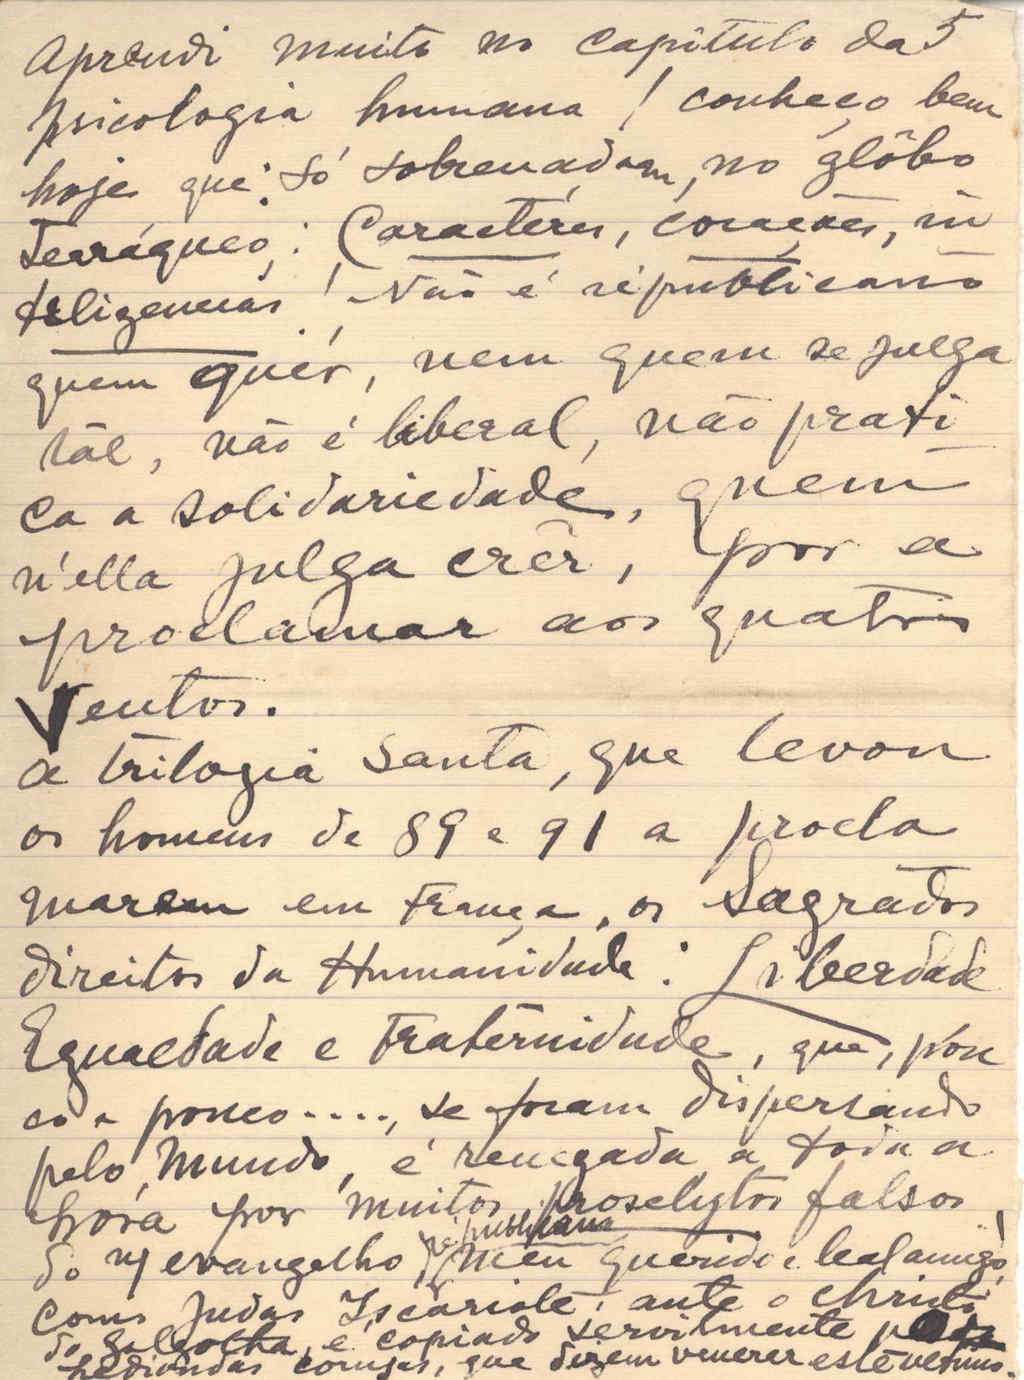 Aprendi muito no capitulo da 5
psicologia humana! conheço bem
hoje que só sobrenadam, no glôbo
Terráqueo: Caractéres, corações, in
teligencias! Não é republicano
quem quér, nem quem se julga
tál, não é liberal, não prati
ca a solidariedade, quem
n'ella julga crêr, por a
proclamar aos quatro
Ventos.
A trilogia santa, que levou
os homens de 89 e 91 a procla
marem em França, os Sagrados
direitos da Humanidade: Liberdade
Egualdade e Fraternidade, que, pou
co a pouco...., se foram dispersando
pelo Mundo, é renegada a toda a
hora por muitos proselytos falsos
do n/ evangelho republicano! Meu querido e leal amigo,
como Judas Iscariote: ante o Christo
do Golgotha, é copiado servilmente
hediondas corujas, que dizem venerar este